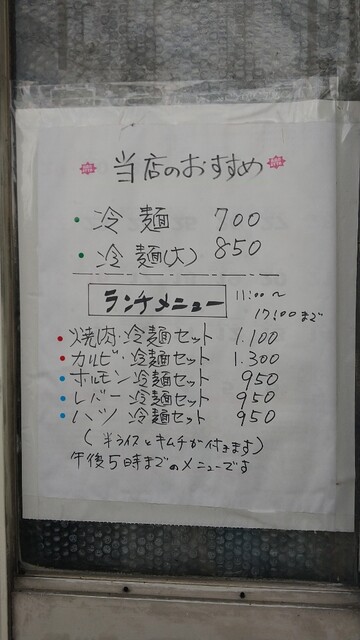 当店のおすすめ
・冷麺 700
・冷麺(大) 850
ランチメニュー 11:00〜
17:00まで
・焼肉・冷麺セット 1.100
・カルビ・冷麺セット 1.300
・ホルモン冷麺セット 950
・レバー冷麺セット 950
・ハツ冷麺セット 950
(半ライスとキムチが付きます)
午後5時までのメニューです